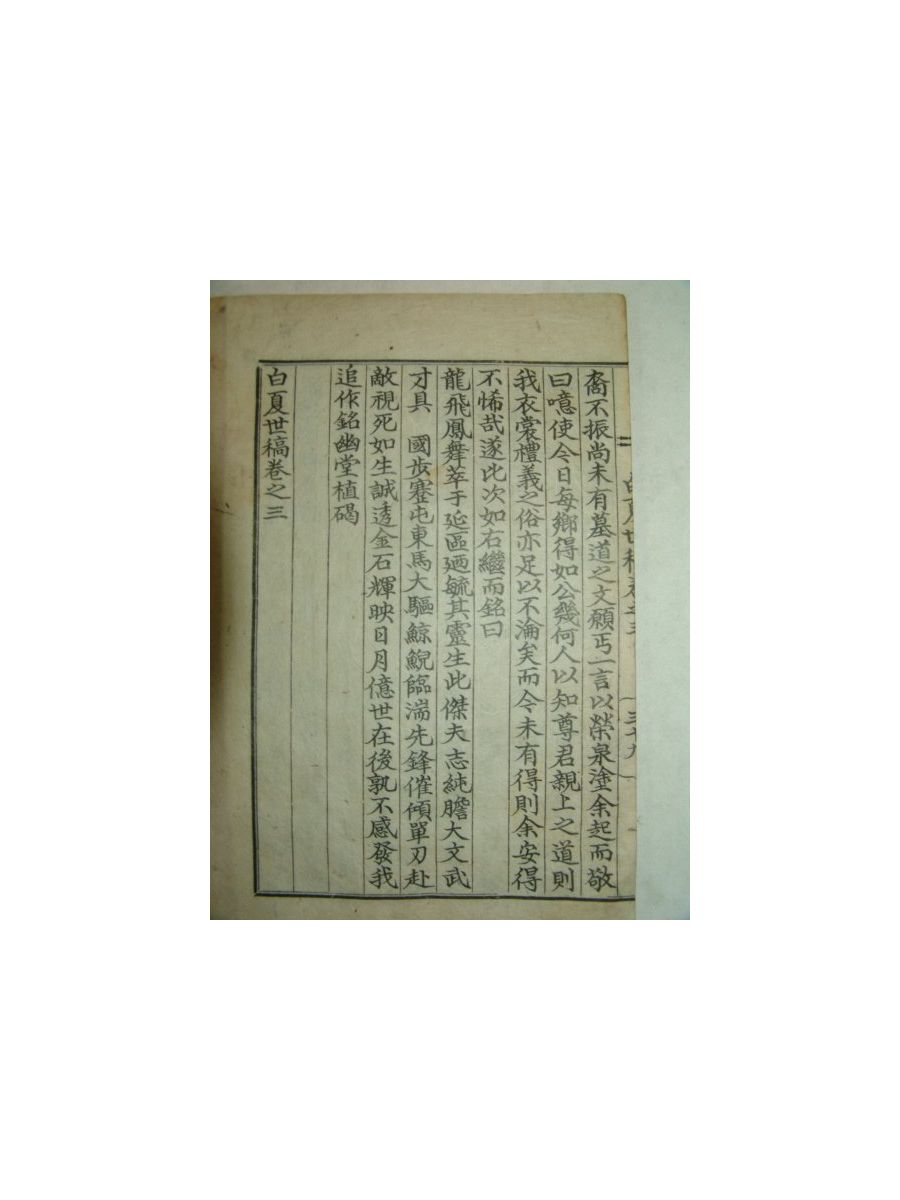 白夏世稿卷之三 三十九
裔不振尚未有墓道之文願丐一言以榮泉塗余起而敬
曰噫使今日每鄉得如公幾何人以知尊君親上之道則
我衣裳禮義之俗亦足以不淪矣而今未有得則余安得
不悕哉遂比次如右繼而銘曰
龍飛鳳舞萃于延區廼毓其靈生此傑夫志純膽大文武
才具 國步蹇屯東馬大驅鯨鯢臨湍先鋒催傾單刃赴
敵視死如生誠透金石輝映日月億世在後孰不感發我
追作銘幽堂植碣
白夏世稿卷之三